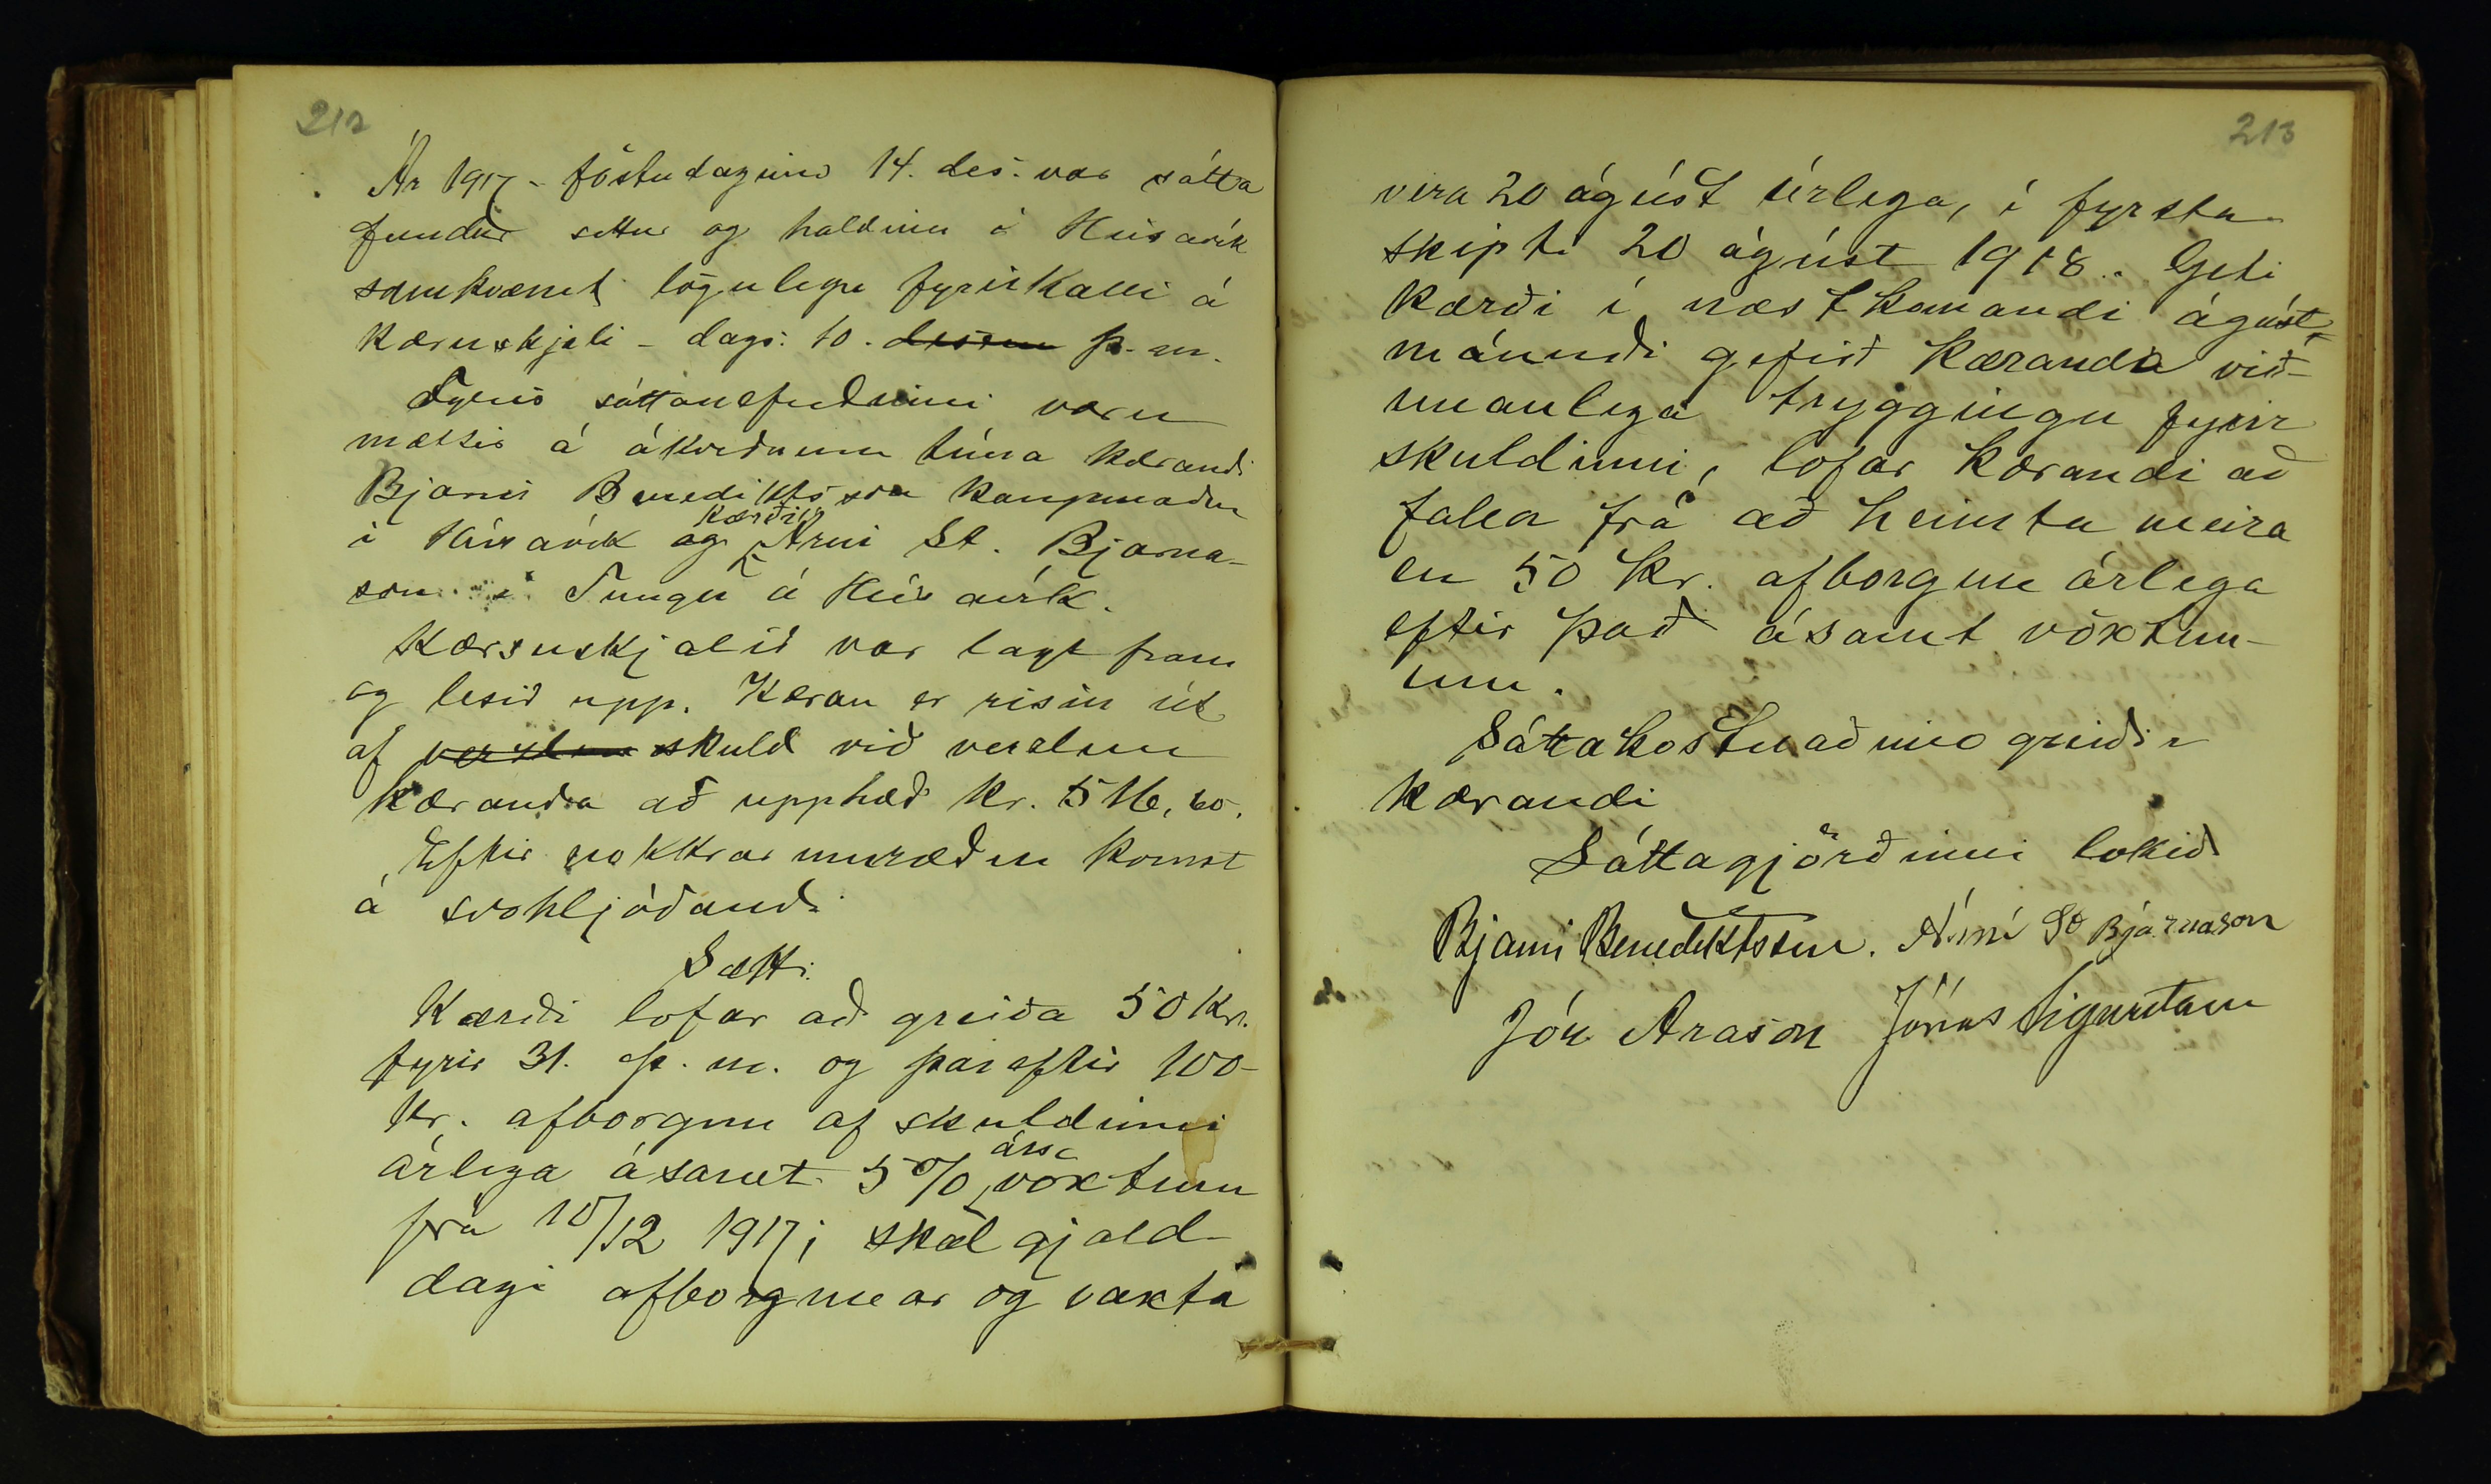 212
Ár 1917 - föstudaginn 14. des. var sátta
fundur settur og haldinn í Húsavík
samkvæmt löglegu fyrirkalli á
kæruskjali - dags. 10. desem þ. m.
Fyrir sáttanefndinni voru
mættir á ákveðnum tíma kærandi
Bjarni Benediktsson kaupmaður
í Húsavík og kærði Árni St. Bjarna-
son í Tungu á Húsavík.
Kæruskjalið var lagt fram
og lesið upp. Kæran er risin út
af verzlun skuld við verzlun
kæranda að upphæð kr. 516,60.
Eftir nokkrar umræður komst
á svohljóðandi
Sætt:
Kærði lofar að greiða 50 kr.
fyrir 31. þ. m. og þar eftir 100-
kr. afborgun af skuldinni
árlega ásamt 5% árs vöxtum
frá 10/12 1917; skal gjald-
dagi afborgunar og vaxta
213
vera 20 ágúst árlega, í fyrsta
skipti 20 ágúst 1918. Geti
kærði í næstkomandi ágúst-
mánuði gefið kæranda við-
unanlega tryggingu fyrir
skuldinni, lofar kærandi að
falla frá að heimta meira
en 50 kr. afborgun árlega
eftir það ásamt vöxtun-
um.
Sáttakostnaðinn greiðir
kærandi
Sáttagjörðinni lokið
Bjarni Benediktsson. Árni St Bjarnason
Jón Arason Jónas Sigurðsson